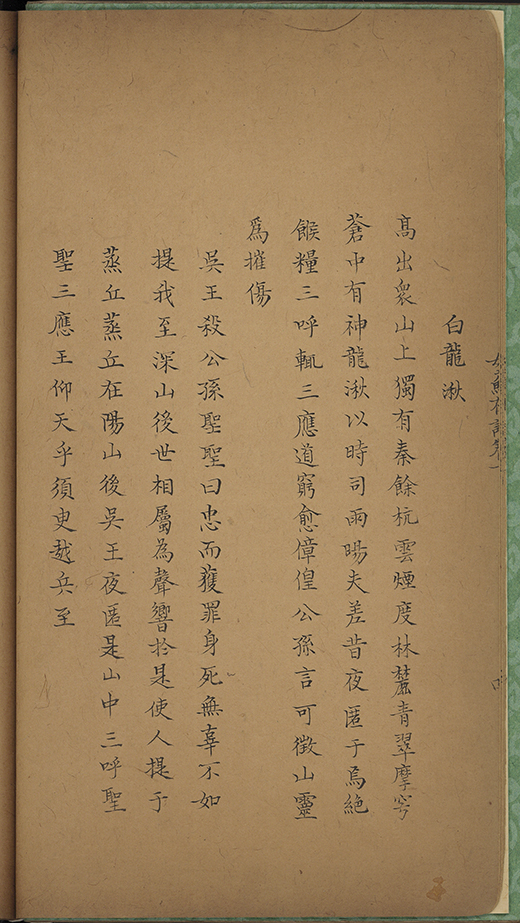 白龍湫
高出衆山上獨有秦餘杭雲煙度林麓青翠摩穹
蒼中有神龍湫以時司雨暘夫差昔夜匿于焉絶
餱糧三呼輒三應道窮愈偟公孫言可徵山靈
爲摧傷
吳王殺公孫聖聖曰忠而獲罪身死無辜不如
提我至深山後世相屬為聲響扵是使人提于
蒸丘蒸丘在陽山後吳王夜匿是山中三呼聖
聖三應王仰天乎須臾越兵至